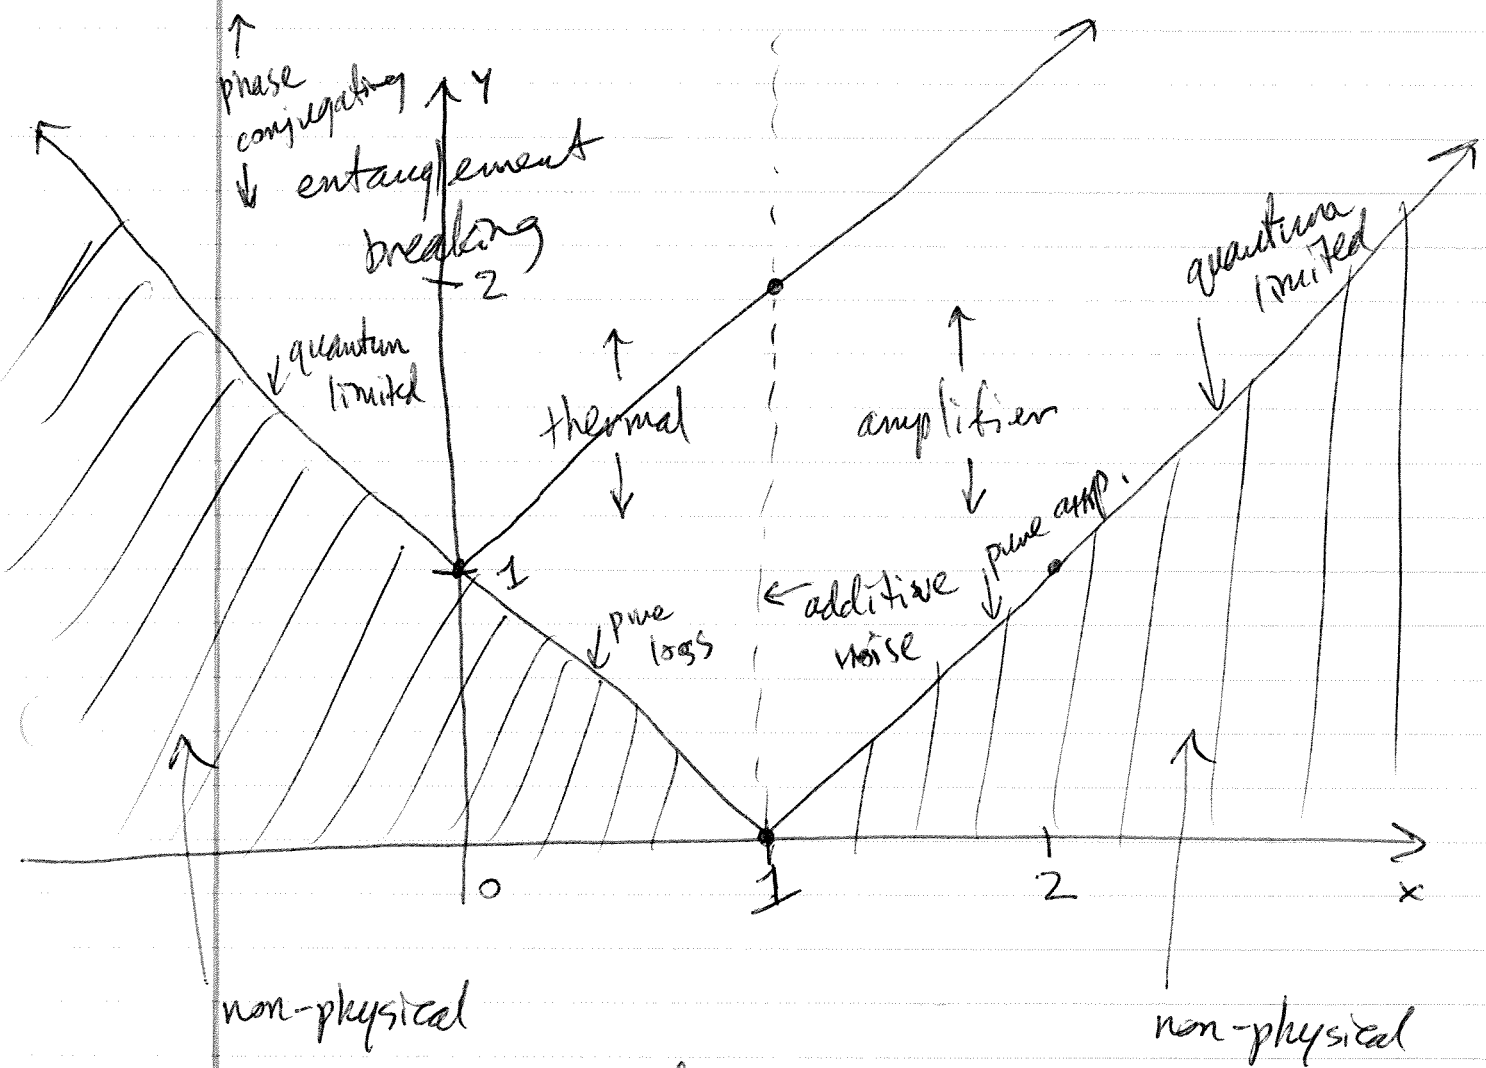 phase
conjugating
y
entanglement
breaking
2
quantum
limited
quantum
limited
thermal
amplifier
pure amp.
1
additive
noise
pure
loss
0
1
2
x
non-physical
non-physical